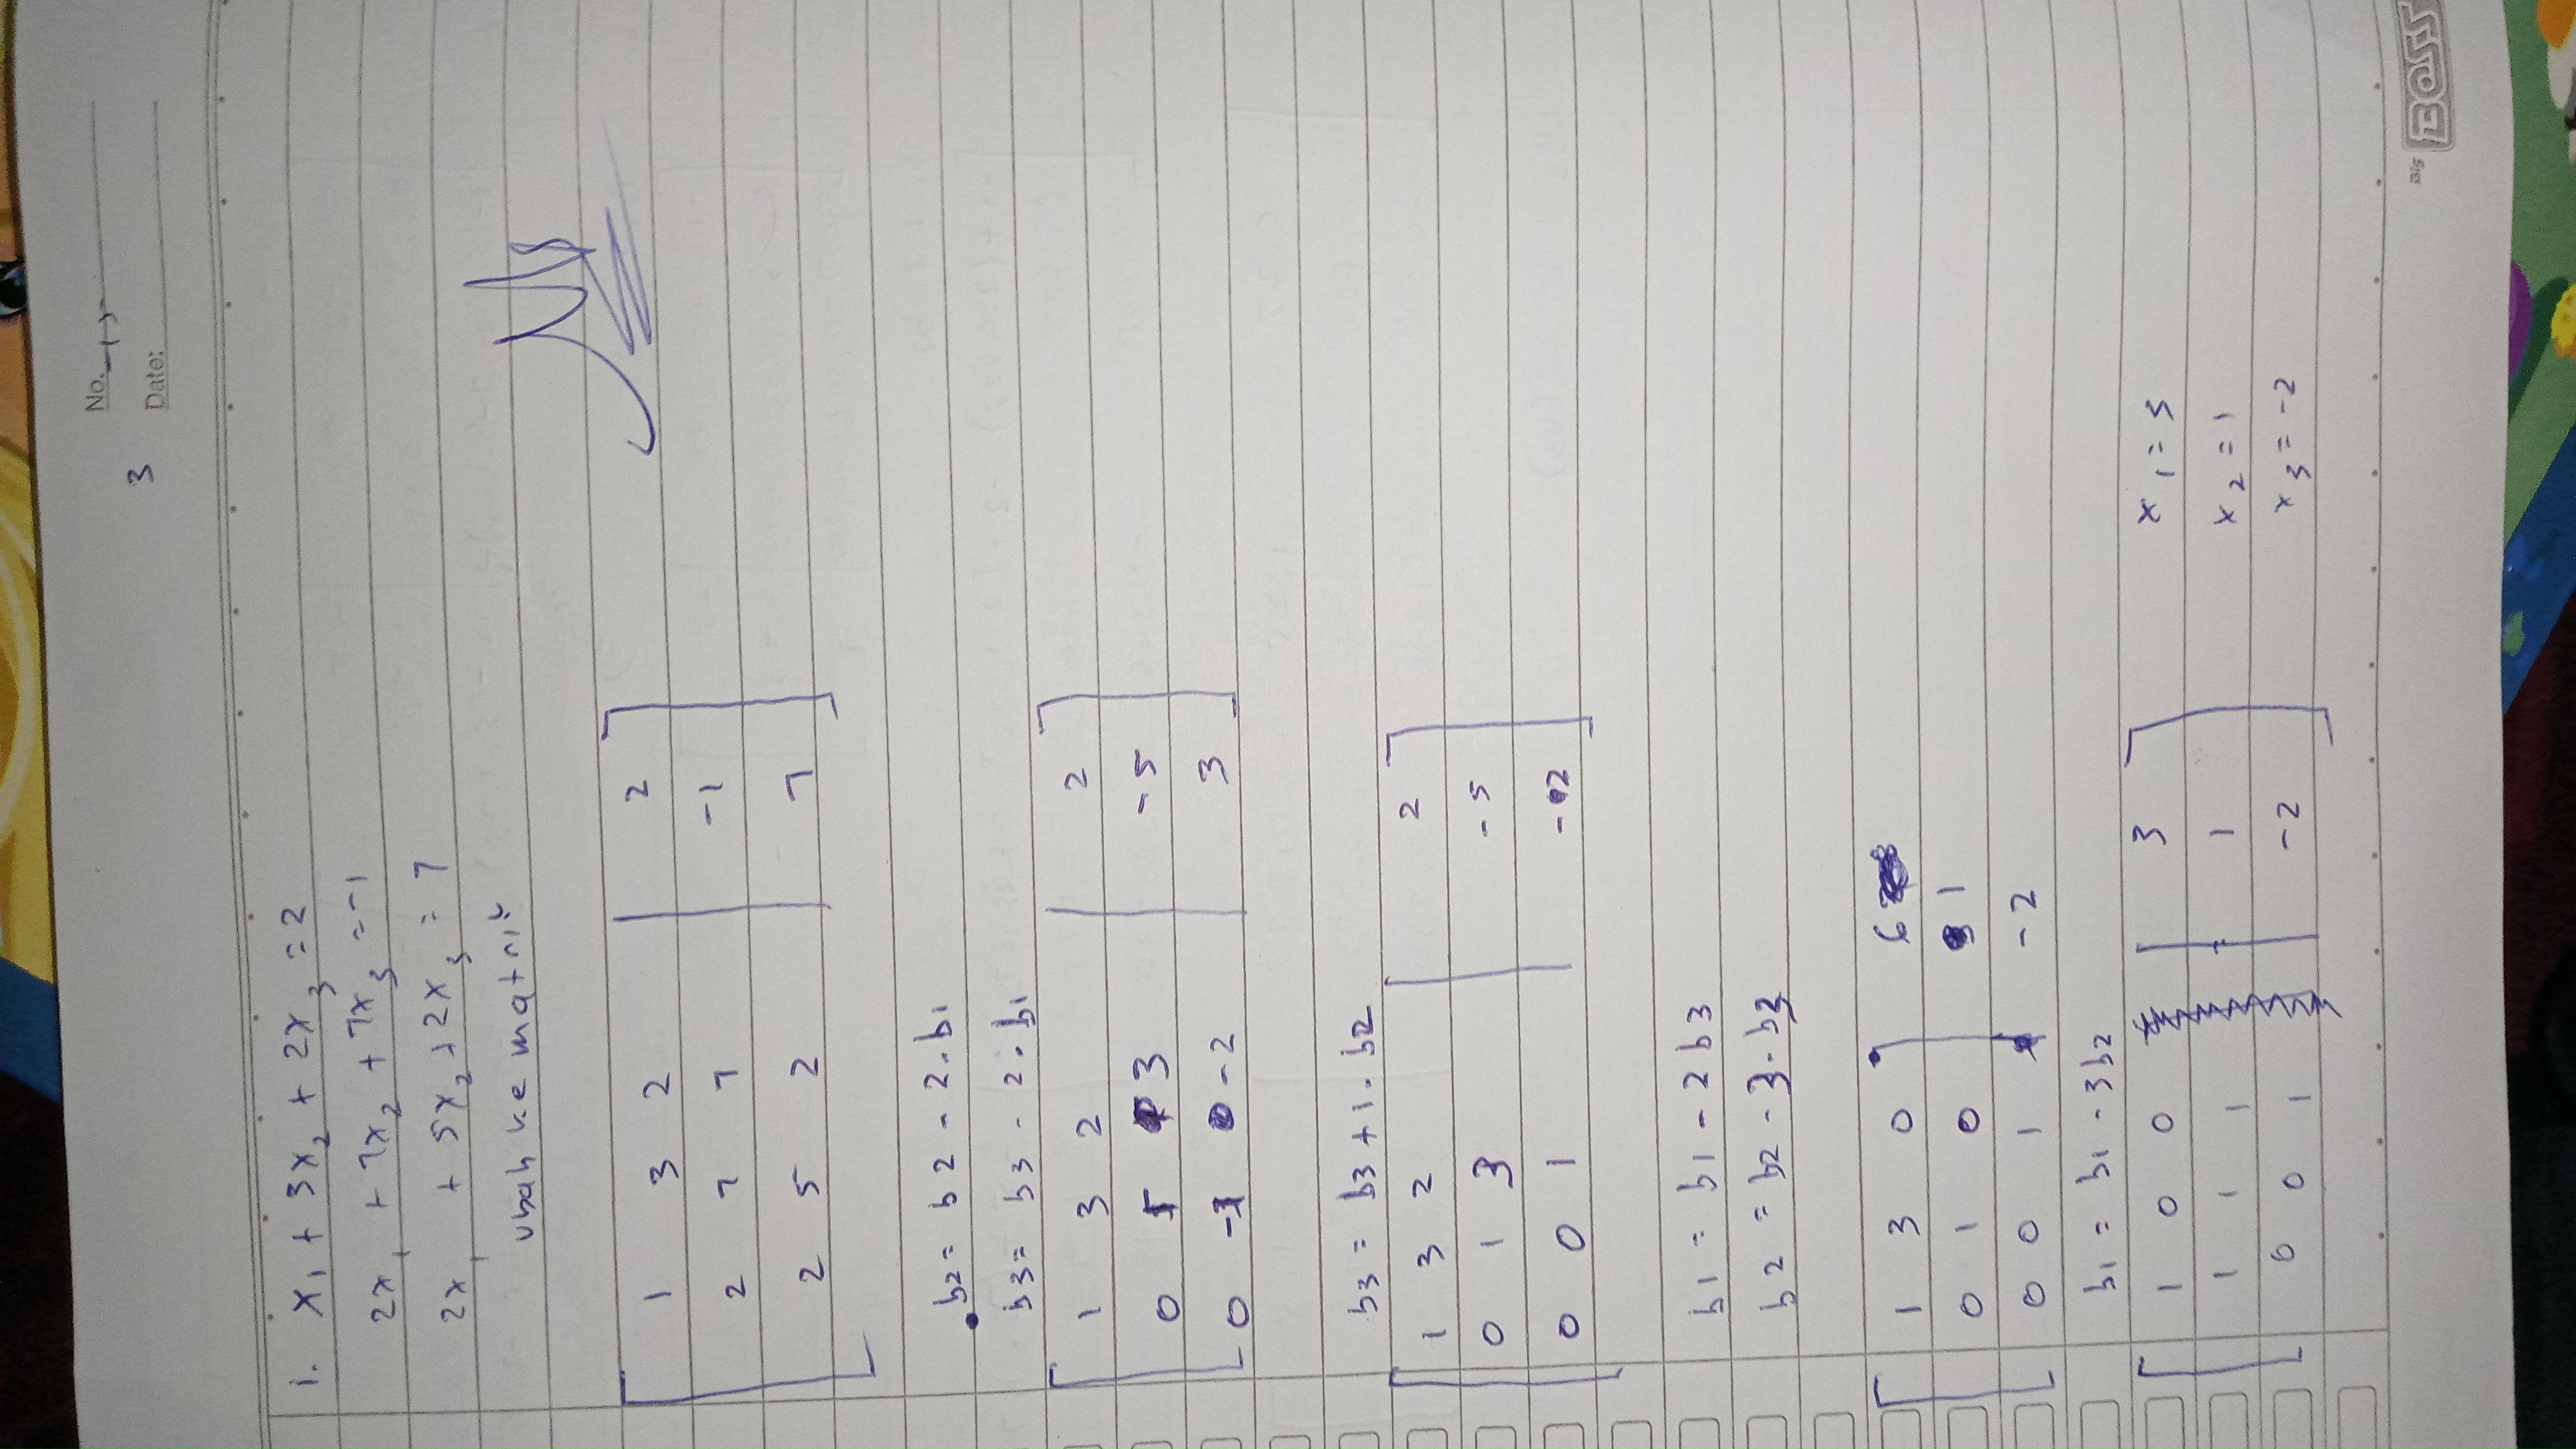 No.
3
Date:
1. x1 + 3x2 + 2x3 = 2
2x1 + 7x2 + 7x3 = -1
2x1 + 5x2 + 2x3 = 7
ubah ke matrix
1 3 2 | 2
2 7 7 | -1
2 5 2 | 7
b2 = b2 - 2.b1
b3 = b3 - 2.b1
1 3 2 | 2
0 1 3 | -5
0 -1 -2 | 3
b3 = b3 + 1.b2
1 3 2 | 2
0 1 3 | -5
0 0 1 | -2
b1 = b1 - 2b3
b2 = b2 - 3.b3
1 3 0 | 6
0 1 0 | 1
0 0 1 | -2
b1 = b1 - 3b2
1 0 0 | 3 x1 = 3
1 1 1 | 1 x2 = 1
0 0 1 | -2 x3 = -2
Big BOSS